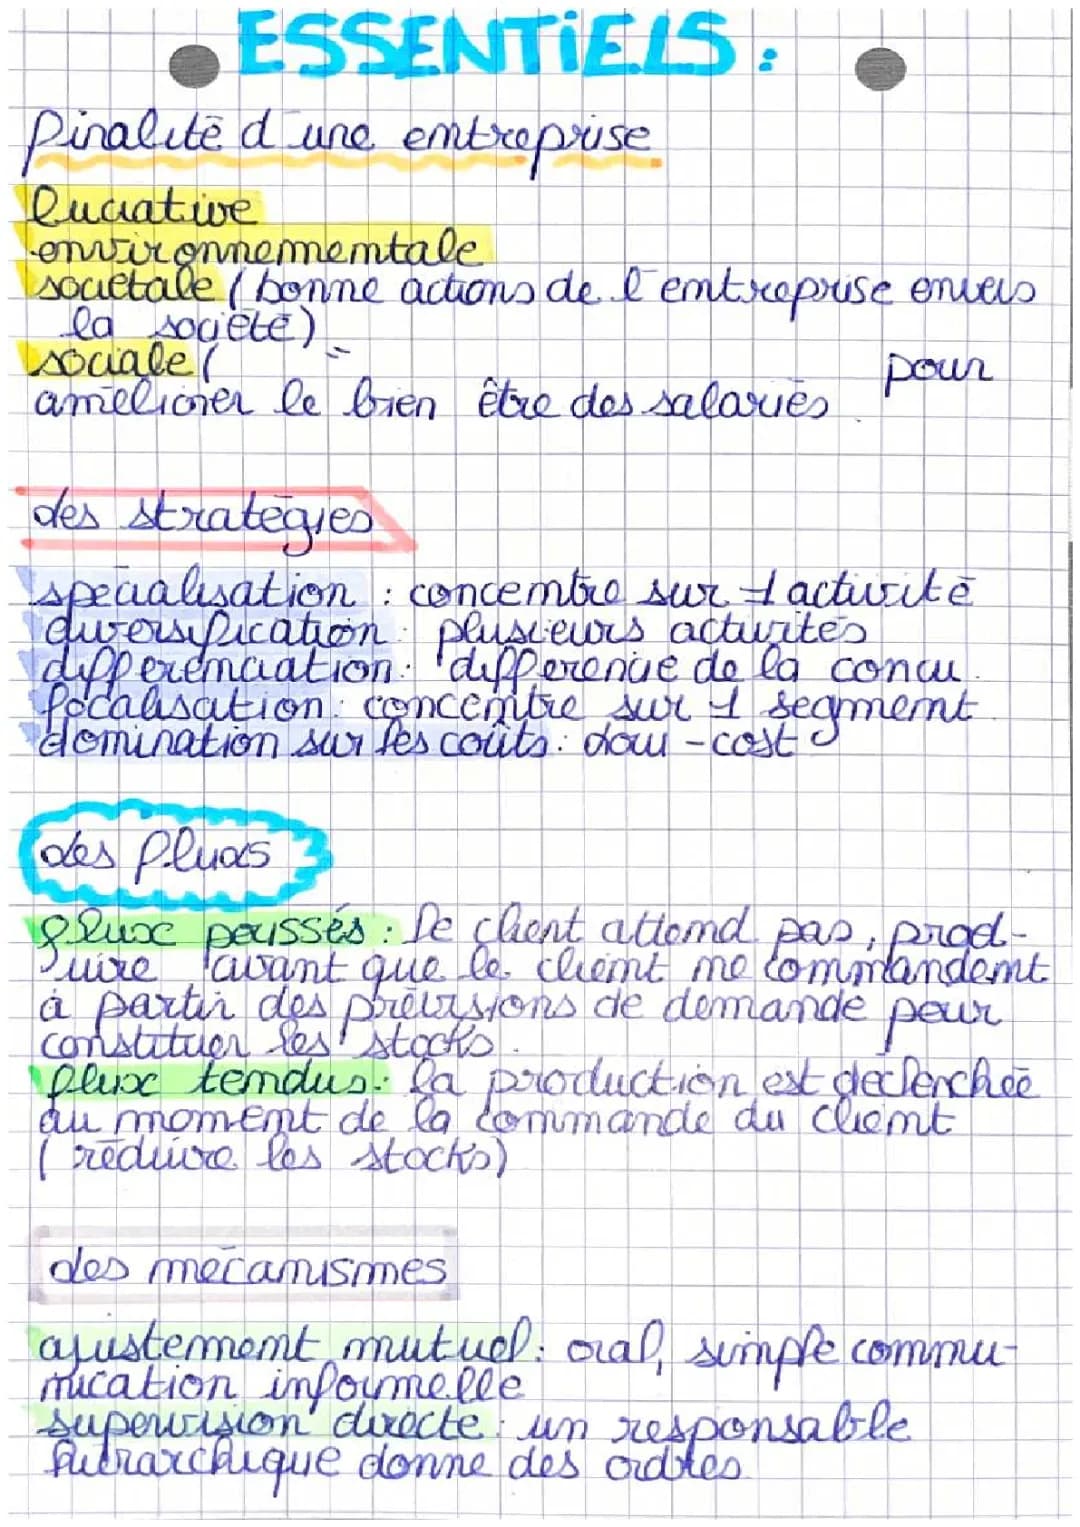 ESSENTIELS :
finalité d'une entreprise
lucrative
environnementale
sociétale (bonne actions de l'entreprise envers
la société)
sociale ( pour
améliorer le bien être des salariés
des stratégies
spécialisation : concentre sur 1 activité
diversification : plusieurs activités
différenciation : différencie de la concu.
focalisation : concentre sur 1 segment
domination sur les coûts : low-cost
des flux
flux poussés : le client attend pas, prod-
uire avant que le client ne commandent
à partir des prévisions de demande pour
constituer les stocks.
flux tendus : la production est déclenchée
au moment de la commande du client
(réduire les stocks)
des mécanismes
ajustement mutuel : oral, simple commu-
nication informelle
supervision directe : un responsable
hiérarchique donne des ordres